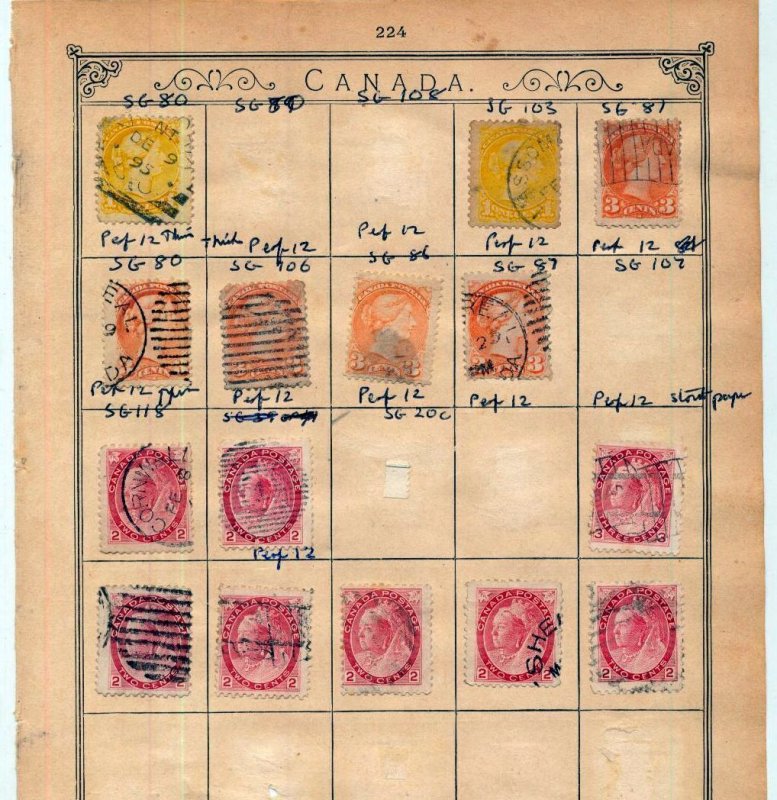 224
CANADA.
SG 80
SG 108
SG 103
SG 87
NT
DE 9
95
3 CENTS 3
Perf 12 Thin
Thick
Perf 12
Perf 12
Perf 12
Perf 12
SG 80
SG 106
SG 86
SG 87
SG 107
Perf 12
Perf 12
Perf 12
Perf 12
Perf 12 stout paper
SG 118
SG 20c
CANADA POSTAGE
CANADA POSTAGE
CANADA POSTAGE
CORNWALL
FE 8
2 TWO CENTS 2
2 TWO CENTS 2
3 THREE CENTS 3
Perf 12
CANADA POSTAGE
CANADA POSTAGE
CANADA POSTAGE
CANADA POSTAGE
CANADA POSTAGE
2 TWO CENTS 2
2 TWO CENTS 2
2 TWO CENTS 2
2 TWO CENTS 2
2 TWO CENTS 2